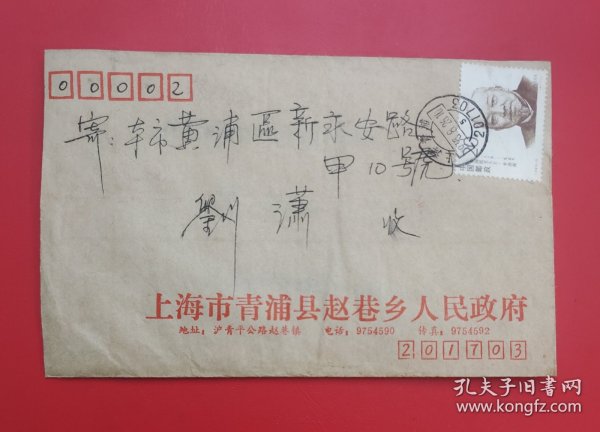 00002
寄：本市黄浦區新永安路
甲10號
劉 潇 收
201703
中国邮政
上海市青浦县赵巷乡人民政府
地址：沪青平公路赵巷镇 电话：9754590 传真：9754592
201703
孔夫子旧书网
www.kongfz.com